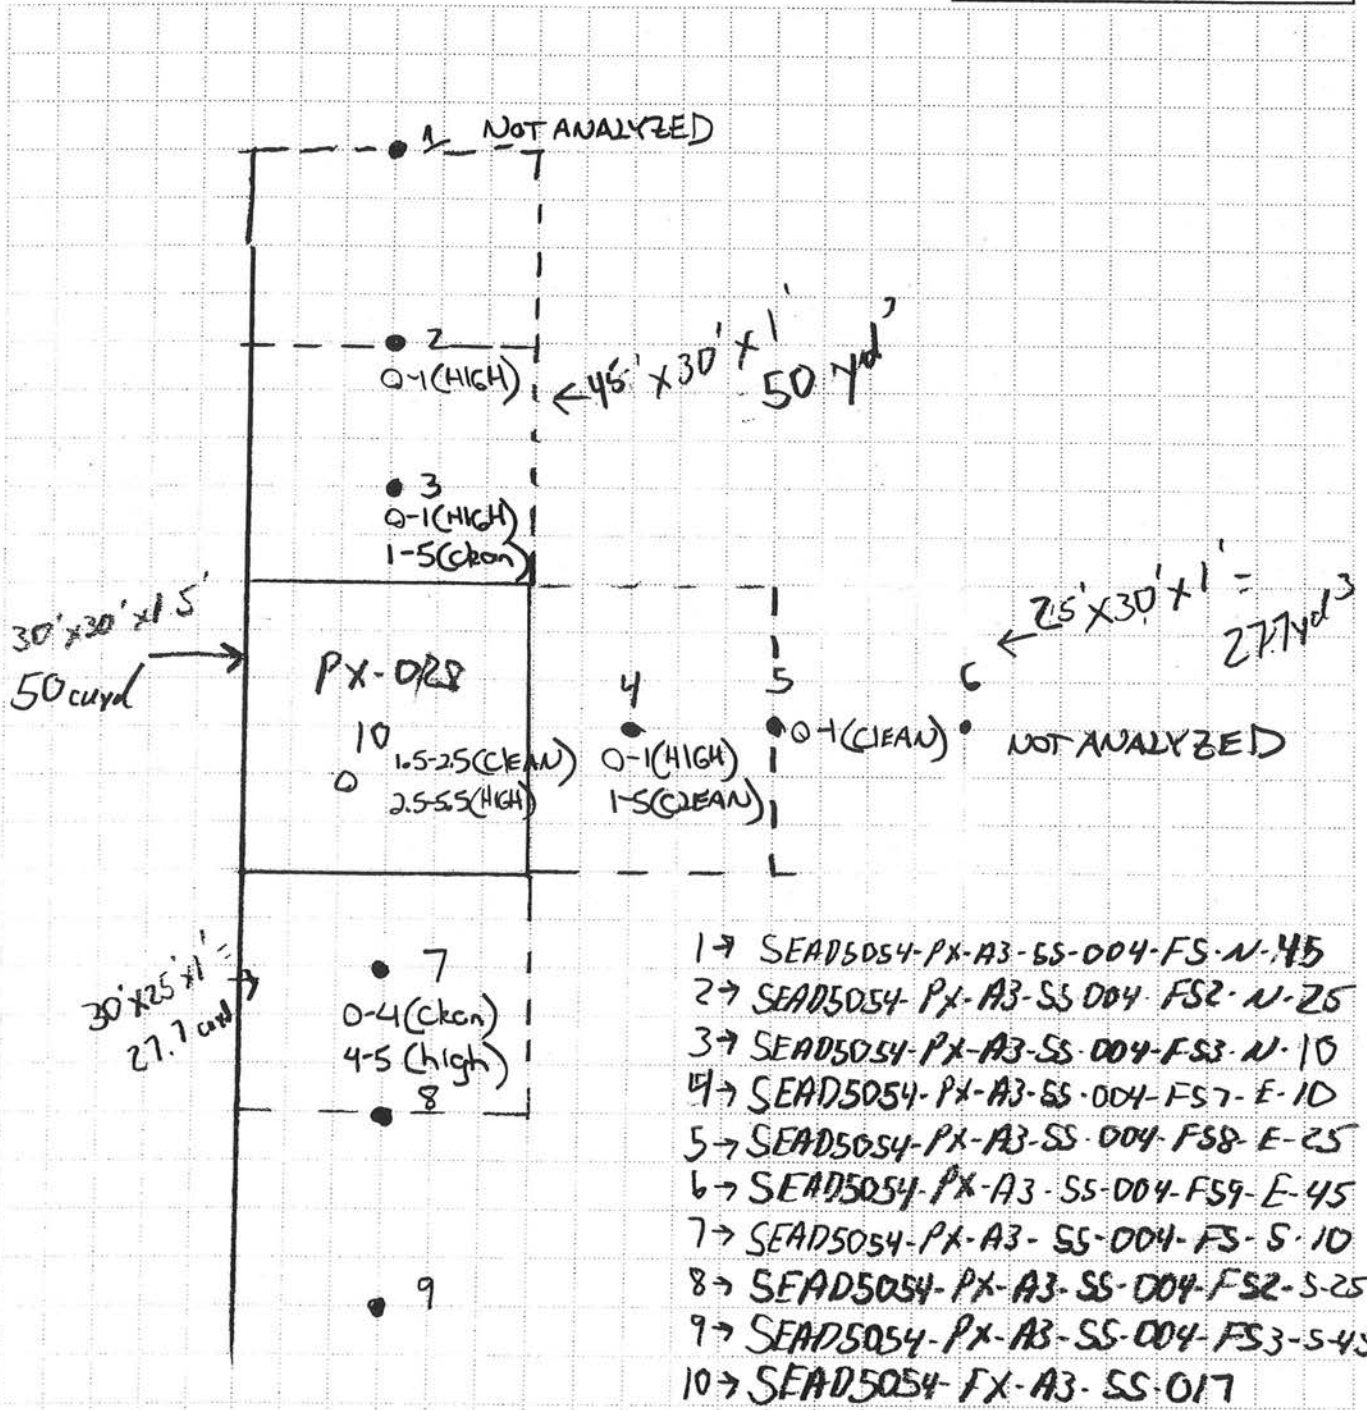 1 NOT ANALYZED
2
0-1(HIGH)
← 45' x 30' x 1'
50 yd³
3
0-1(HIGH)
1-5(Clean)
30' x 30' x 1.5'
50 cuyd
PX-028
10
1.5-2.5(CLEAN)
2.5-5.5(HIGH)
4
0-1(HIGH)
1-5(CLEAN)
5
0-1(CLEAN)
6
NOT ANALYZED
← 25' x 30' x 1' =
27.7 yd³
7
0-4(Clean)
4-5 (high)
30' x 25' x 1' =
27.7 cuyd
8
9
1→ SEAD5054-PX-A3-SS-004-FS-N-45
2→ SEAD5054-PX-A3-SS-004-FS2-N-25
3→ SEAD5054-PX-A3-SS-004-FS3-N-10
4→ SEAD5054-PX-A3-SS-004-FS7-E-10
5→ SEAD5054-PX-A3-SS-004-FS8-E-25
6→ SEAD5054-PX-A3-SS-004-FS9-E-45
7→ SEAD5054-PX-A3-SS-004-FS-S-10
8→ SEAD5054-PX-A3-SS-004-FS2-S-25
9→ SEAD5054-PX-A3-SS-004-FS3-S-45
10→ SEAD5054-FX-A3-SS-017